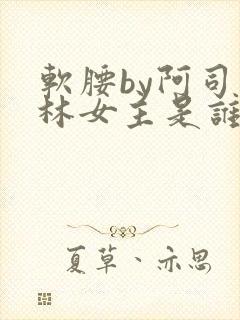 軟腰by阿司
林女主是誰
夏草、亦思